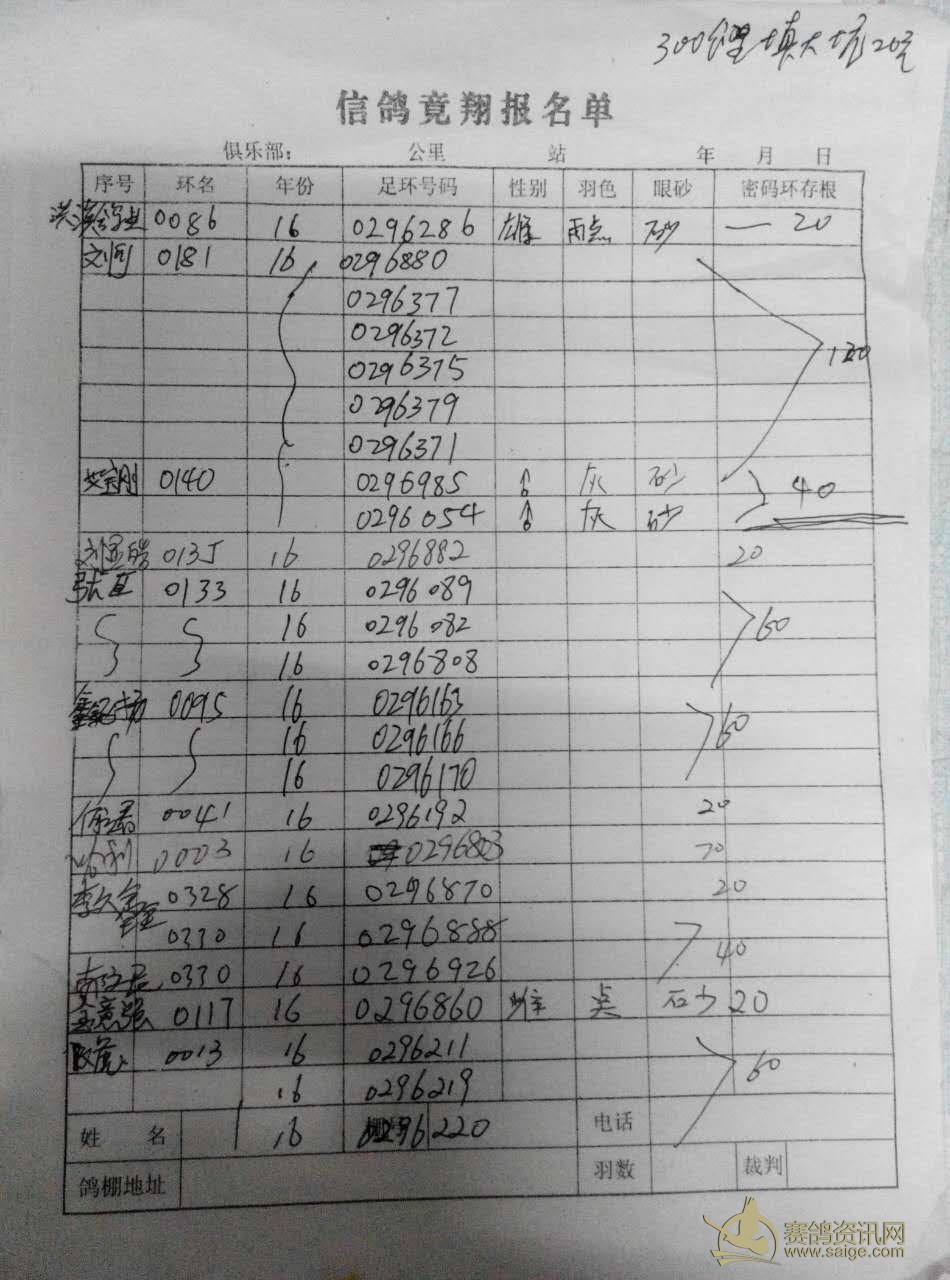 300公里填大坑20元
信鸽竟翔报名单
俱乐部： 公里 站 年 月 日
序号 环名 年份 足环号码 性别 羽色 眼砂 密码环存根
0086 16 0296286 雄 雨点 砂 — 20
刘刚 0181 16 0296880
0296377
0296372
0296375 120
0296379
0296371
0140 0296985 灰 砂 40
0296054 灰 砂
0135 16 0296882 20
0133 16 0296089
16 0296082 60
16 0296808
0095 16 0296163
16 0296166 60
16 0296170
0041 16 0296192 20
0003 16 0296803
李久金 0328 16 0296870 20
0330 16 0296888 40
0330 16 0296926
0117 16 0296860 雄 砂 20
0013 16 0296211
16 0296219 60
姓名 16 0296220 电话
鸽棚地址 羽数 裁判
赛鸽资讯网
www.saige.com